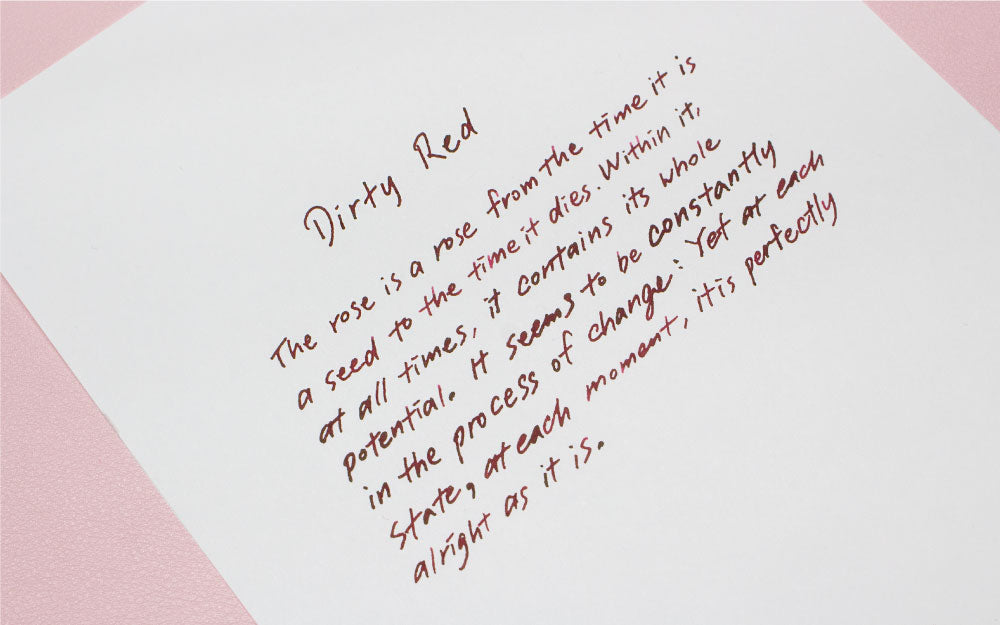 Dirty Red
The rose is a rose from the time it is
a seed to the time it dies. Within it,
at all times, it contains its whole
potential. It seems to be constantly
in the process of change: Yet at each
state, at each moment, it is perfectly
alright as it is.